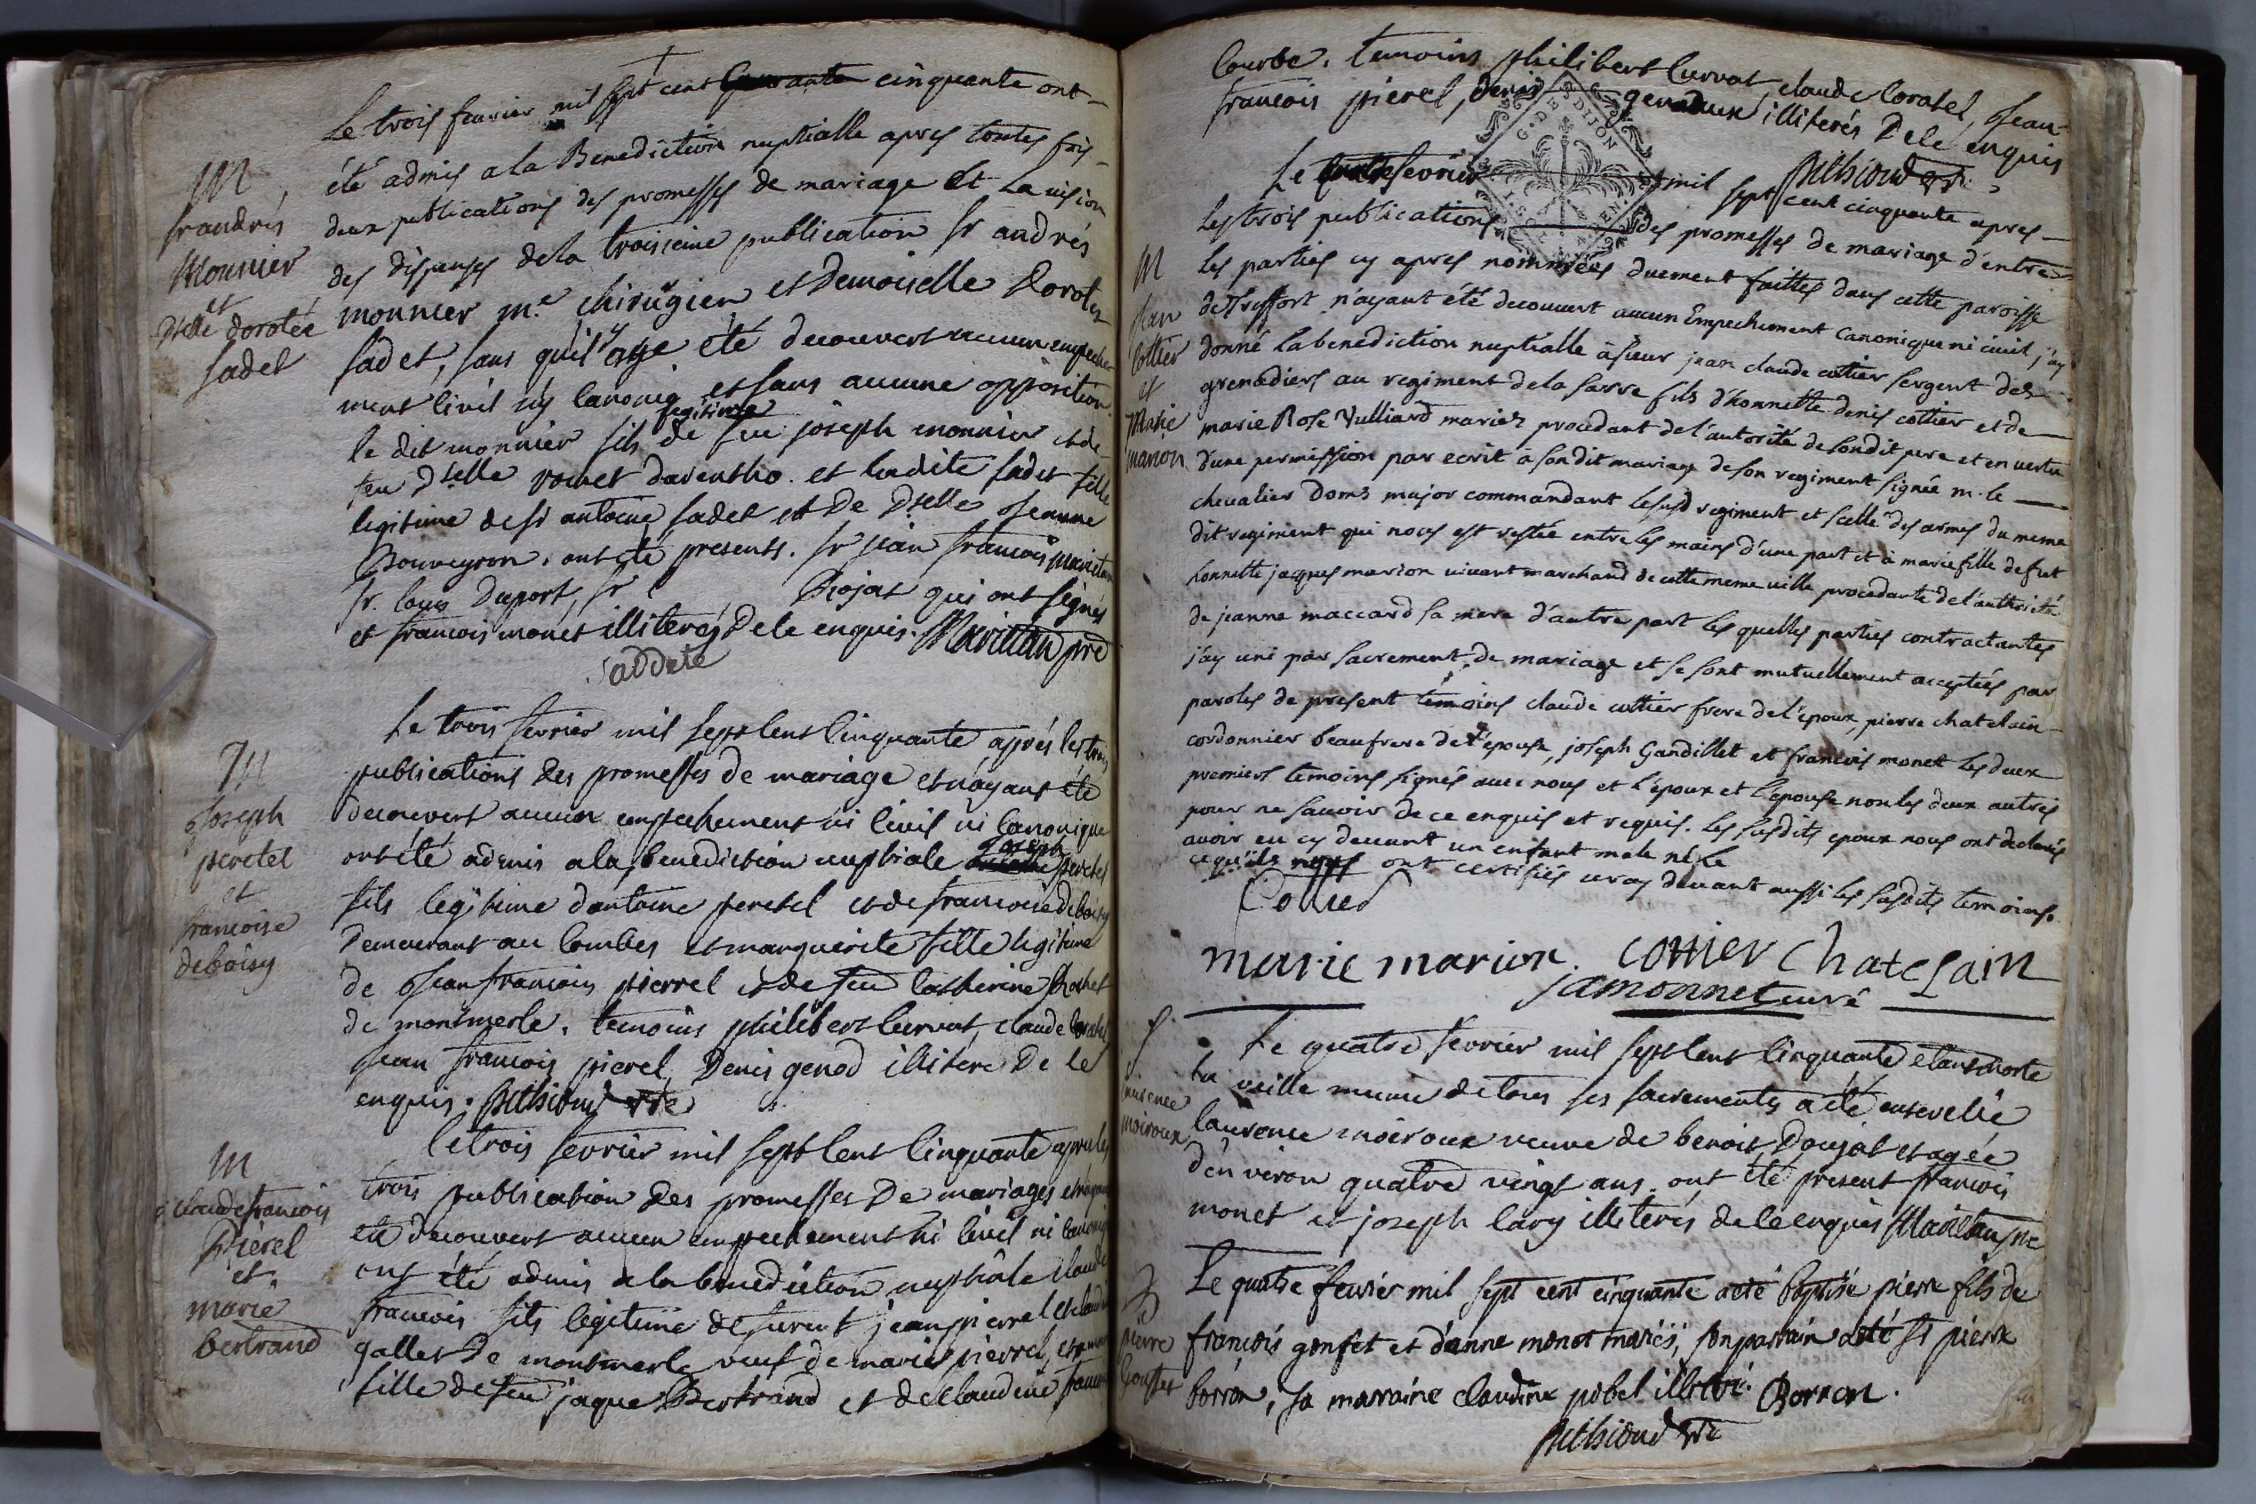 Le trois fevrier mil sept cent quarante cinquante ont
été admis a la Benediction nuptialle apres toutes fois
deux publications des promesses de mariage et la vision
des dispenses de la troisieme publication sr andrés
monnier me chirugien et Demoiselle Dorotée
sadet, sans quil y aye été decouvert aucun empeche
ment civil ny canoniq et sans aucune opposition
le dit monnier fils legitime de feu joseph monnier et de
feu Dselle daventho. et ladite sadet fille
legitime de sr antoine sadet et De Dselle Jeanne
Bouveyron. ont été presents. sr jean françois
sr. louis Duport, sr Rojat qui ont signés
et francois monet illiterés De ce enquis. Marietan pre
sadete
M
sr andrés
Monnier
et
Dselle dorotée
sadet
Le trois fevrier mil sept Cent Cinquante, après les trois
publications des promesses de mariage et n'ayant été
decouvert aucun empechement ni Civil ni Canonique
ont été admis a la benediction nuptiale joseph peretel
fils legitime dantoine peretel et de francoise deboisy
Demeurant au Combes et marguerite fille legitime
de Jean francois pierrel et de feu Catherine Rochet
de montmerle. temoins philibert Curvat, claude Coratel
jean francois pierel, Denis genod illiteré De Ce
enquis. Bethioud vre
M
Joseph
peretel
et
francoise
deboisy
le trois fevrier mil sept Cent Cinquante apres les
trois publication des promesses De mariages et n'ayant
été decouvert aucun empechement ni Civil ni Canoniq
ont été admis a la benediction nuptiale Claude
francois fils legitime de furent jean pierrel et claudine
gallet De montmerle veuf de marie pierrel, et marie
fille de feu jaque Bertrand et de Claudine francois
M
Claude francois
Pierel
et
marie
bertrand
Courbe. temoins philibert Curvat, claude Coratel, Jean
francois pierel, denis genod illiterés De Ce enquis
Bethioud vre
G. DE DIJON
Le fevrier mil sept cent cinquante apres
les trois publications des promesses de mariage d'entre
les parties cy apres nommées duement faittes dans cette paroisse
de Treffort n'ayant été decouvert aucun Empechement canonique ni civil j'ay
donné la benediction nuptialle à sieur jean claude cottier sergent des
grenadiers au regiment de la sarre fils d'honnette denis cottier et de
marie Rose Vulliard mariés procedant de l'autorité de sondit pere et en vertu
d'une permission par ecrit à son dit mariage de son regiment signée m. le
chevalier Doms major commandant lesusd regiment et scellé des armes du meme
dit regiment qui nous est restée entre les mains d'une part et à marie fille de fut
honnette jacques marion vivant marchand de cette meme ville procedante de l'authorité
de jeanne maccard sa mere d'autre part les quelles parties contractantes
j'ay uni par sacrement de mariage et se sont mutuellement acceptées par
paroles de present témoins claude cottier frere de l'epoux, pierre chatelain
cordonnier beaufrere de l'epouse, joseph Gandillet et francois monet les deux
premiers temoins signés avec nous et l'époux et l'epouse non les deux autres
pour ne savoir de ce enquis et requis. les susdits epoux nous ont declarés
avoir eu cy devant un enfant male né le
ce qu'ils nous ont certifiés vray devant aussi les susdits temoins.
Cottier
marie marion. cottier Chatelain
jamonnet curé
M
Jean
Cottier
et
Marie
marion
Le quatre fevrier mil sept Cent Cinquante étant morte
la veille munie de tous ses sacrements a été ensevelie
laurence moiroux veuve de benoit Doujat et agée
d'en viron quatre vingt ans. ont été present francois
monet et joseph lary illiterés de ce enquis Marietan pre
S
laurence
moiroux
Le quatre fevrier mil sept cent cinquante a eté baptisé pierre fils de
françois gonfet et d'anne monot mariés; son parrain a eté sr pierre
borron, sa marraine claudine pobel illiteré. Borron.
Bethioud vre
B
pierre
gouffet